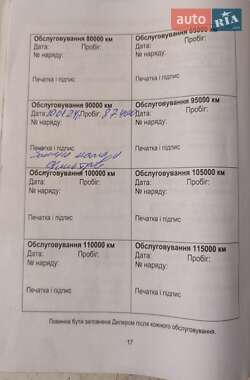 AUTO RIA .com
Обслуговування 80000 км
Дата: Пробіг:
№ наряду:
Печатка і підпис
Обслуговування 85000 км
Дата: Пробіг:
№ наряду:
Печатка і підпис
Обслуговування 90000 км
Дата: Пробіг:
№ наряду:
Печатка і підпис
Обслуговування 95000 км
Дата: Пробіг:
№ наряду:
Печатка і підпис
Обслуговування 100000 км
Дата: Пробіг:
№ наряду:
Печатка і підпис
Обслуговування 105000 км
Дата: Пробіг:
№ наряду:
Печатка і підпис
Обслуговування 110000 км
Дата: Пробіг:
№ наряду:
Печатка і підпис
Обслуговування 115000 км
Дата: Пробіг:
№ наряду:
Печатка і підпис
Повинна бути заповнена Дилером після кожного обслуговування.
17